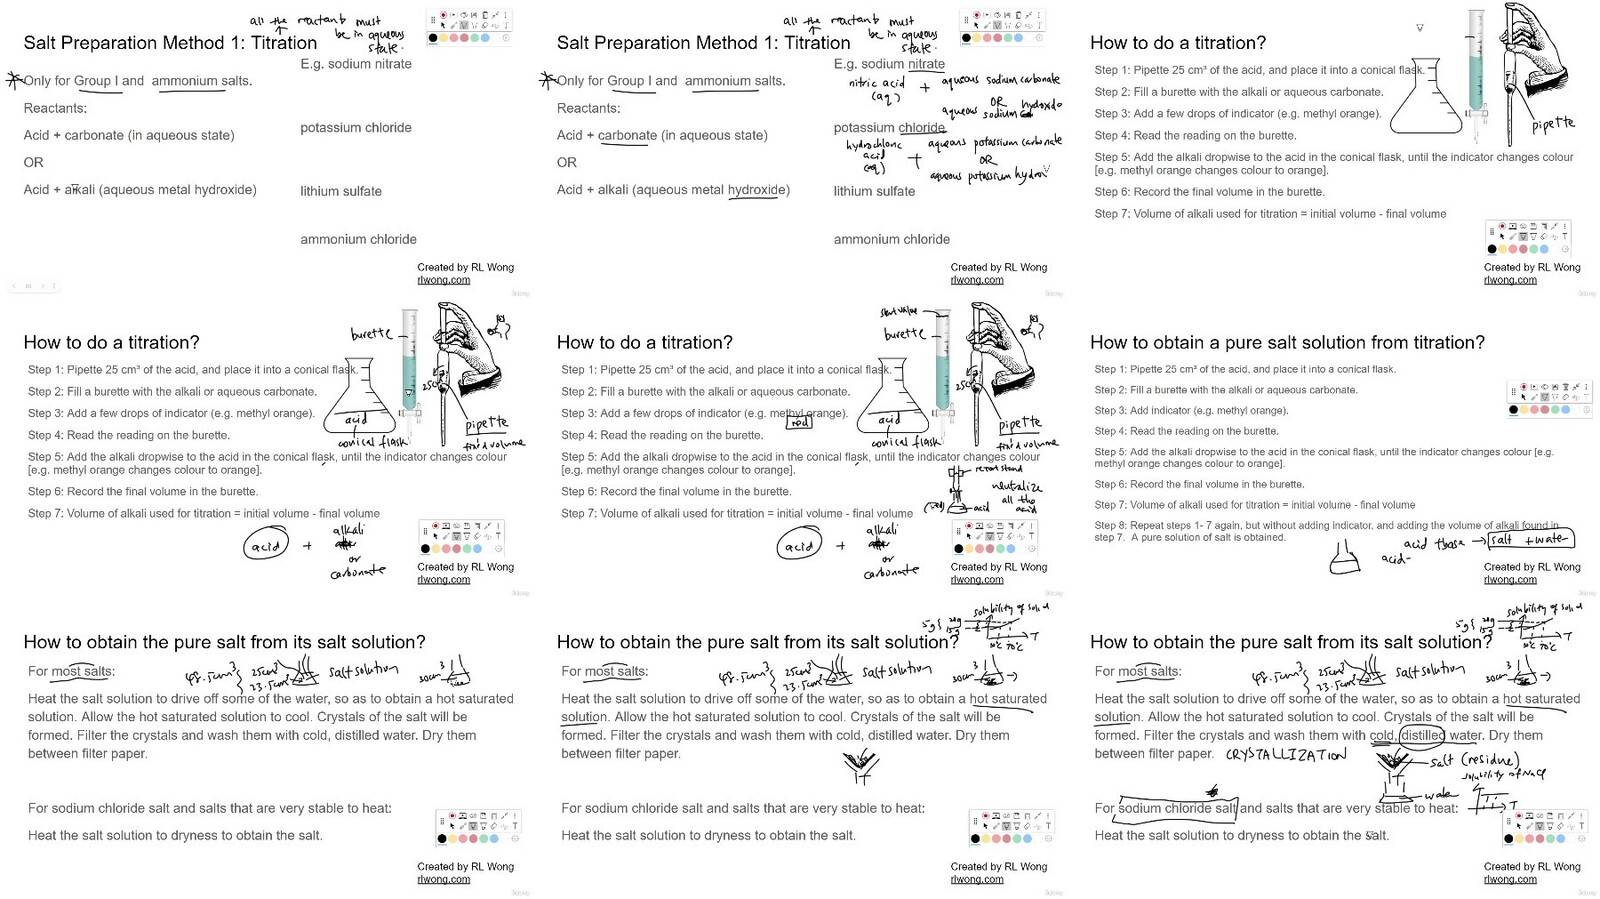 all the reactants must
be in aqueous
state.
Salt Preparation Method 1: Titration
E.g. sodium nitrate
Only for Group I and ammonium salts.
Reactants:
Acid + carbonate (in aqueous state)
potassium chloride
OR
Acid + alkali (aqueous metal hydroxide)
lithium sulfate
ammonium chloride
Created by RL Wong
rlwong.com
all the reactants must
be in aqueous
state.
Salt Preparation Method 1: Titration
E.g. sodium nitrate
Only for Group I and ammonium salts.
nitric acid (aq) + aqueous sodium carbonate
OR
aqueous sodium hydroxide
Reactants:
Acid + carbonate (in aqueous state)
potassium chloride
hydrochloric acid (aq) + aqueous potassium carbonate
OR
aqueous potassium hydrox
OR
Acid + alkali (aqueous metal hydroxide)
lithium sulfate
ammonium chloride
Created by RL Wong
rlwong.com
How to do a titration?
Step 1: Pipette 25 cm³ of the acid, and place it into a conical flask.
Step 2: Fill a burette with the alkali or aqueous carbonate.
Step 3: Add a few drops of indicator (e.g. methyl orange).
pipette
Step 4: Read the reading on the burette.
Step 5: Add the alkali dropwise to the acid in the conical flask, until the indicator changes colour
[e.g. methyl orange changes colour to orange].
Step 6: Record the final volume in the burette.
Step 7: Volume of alkali used for titration = initial volume - final volume
Created by RL Wong
rlwong.com
How to do a titration?
burette
Step 1: Pipette 25 cm³ of the acid, and place it into a conical flask.
Step 2: Fill a burette with the alkali or aqueous carbonate.
Step 3: Add a few drops of indicator (e.g. methyl orange).
acid
pipette
Step 4: Read the reading on the burette.
conical flask
fixed volume
Step 5: Add the alkali dropwise to the acid in the conical flask, until the indicator changes colour
[e.g. methyl orange changes colour to orange].
Step 6: Record the final volume in the burette.
Step 7: Volume of alkali used for titration = initial volume - final volume
acid + alkali
or
carbonate
Created by RL Wong
rlwong.com
start value
How to do a titration?
burette
Step 1: Pipette 25 cm³ of the acid, and place it into a conical flask.
Step 2: Fill a burette with the alkali or aqueous carbonate.
Step 3: Add a few drops of indicator (e.g. methyl orange).
red
acid
pipette
Step 4: Read the reading on the burette.
conical flask
fixed volume
Step 5: Add the alkali dropwise to the acid in the conical flask, until the indicator changes colour
[e.g. methyl orange changes colour to orange].
retort stand
Step 6: Record the final volume in the burette.
neutralize
all the
acid
(red)
acid
Step 7: Volume of alkali used for titration = initial volume - final volume
acid + alkali
or
carbonate
Created by RL Wong
rlwong.com
How to obtain a pure salt solution from titration?
Step 1: Pipette 25 cm³ of the acid, and place it into a conical flask.
Step 2: Fill a burette with the alkali or aqueous carbonate.
Step 3: Add indicator (e.g. methyl orange).
Step 4: Read the reading on the burette.
Step 5: Add the alkali dropwise to the acid in the conical flask, until the indicator changes colour [e.g.
methyl orange changes colour to orange].
Step 6: Record the final volume in the burette.
Step 7: Volume of alkali used for titration = initial volume - final volume
Step 8: Repeat steps 1- 7 again, but without adding indicator, and adding the volume of alkali found in
step 7. A pure solution of salt is obtained.
acid + base → salt + water
acid-
Created by RL Wong
rlwong.com
How to obtain the pure salt from its salt solution?
For most salts:
48.5cm³ { 25cm³
23.5cm³
salt solution
30cm³
Heat the salt solution to drive off some of the water, so as to obtain a hot saturated
solution. Allow the hot saturated solution to cool. Crystals of the salt will be
formed. Filter the crystals and wash them with cold, distilled water. Dry them
between filter paper.
For sodium chloride salt and salts that are very stable to heat:
Heat the salt solution to dryness to obtain the salt.
Created by RL Wong
rlwong.com
solubility of solid
5g
T
How to obtain the pure salt from its salt solution?
For most salts:
48.5cm³ { 25cm³
23.5cm³
salt solution
30cm³
Heat the salt solution to drive off some of the water, so as to obtain a hot saturated
solution. Allow the hot saturated solution to cool. Crystals of the salt will be
formed. Filter the crystals and wash them with cold, distilled water. Dry them
between filter paper.
For sodium chloride salt and salts that are very stable to heat:
Heat the salt solution to dryness to obtain the salt.
Created by RL Wong
rlwong.com
solubility of solid
5g
T
How to obtain the pure salt from its salt solution?
For most salts:
48.5cm³ { 25cm³
23.5cm³
salt solution
30cm³
Heat the salt solution to drive off some of the water, so as to obtain a hot saturated
solution. Allow the hot saturated solution to cool. Crystals of the salt will be
formed. Filter the crystals and wash them with cold, distilled water. Dry them
between filter paper. CRYSTALLIZATION
salt (residue)
solubility of NaCl
water
T
For sodium chloride salt and salts that are very stable to heat:
Heat the salt solution to dryness to obtain the salt.
Created by RL Wong
rlwong.com